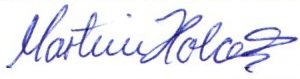 Martin Holcát